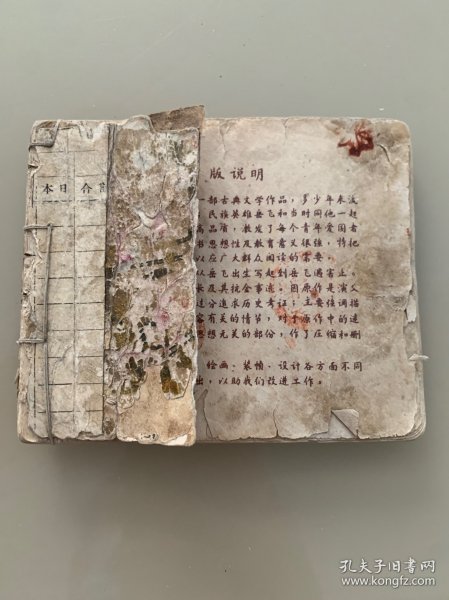 本日合
版说明
一部古典文学作品，多少年来流
民族英雄岳飞和当时同他一起
高品质，激发了每个青年爱国者
书思想性及教育意义很强，特把
以应广大群众阅读的需要。
从岳飞出生写起到岳飞遇害止。
长及其抗金事迹。因原作是演义
过分追求历史考证；主要强调描
家有关的情节，对于原作中的迷
思想无关的部份，作了压缩和删
绘画、装帧、设计各方面不同
出，以助我们改进工作。
孔夫子旧书网
www.kongfz.com